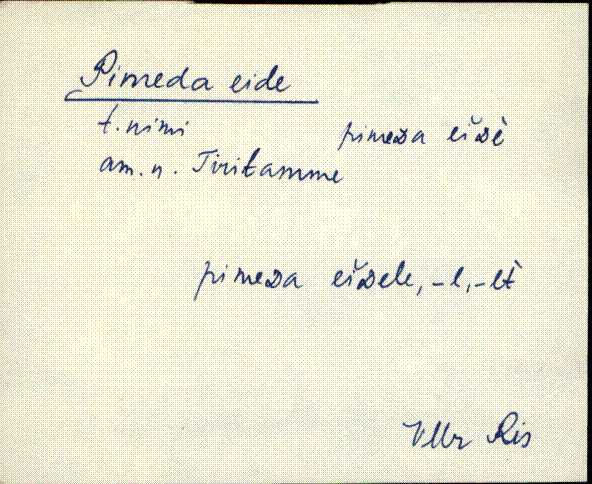 Pimeda eide
t. nimi pimeᴅa eĭᴅè
am. n. Tiritamme
pimeᴅa eĭᴅele, -l, -lt̀
VMr Ris